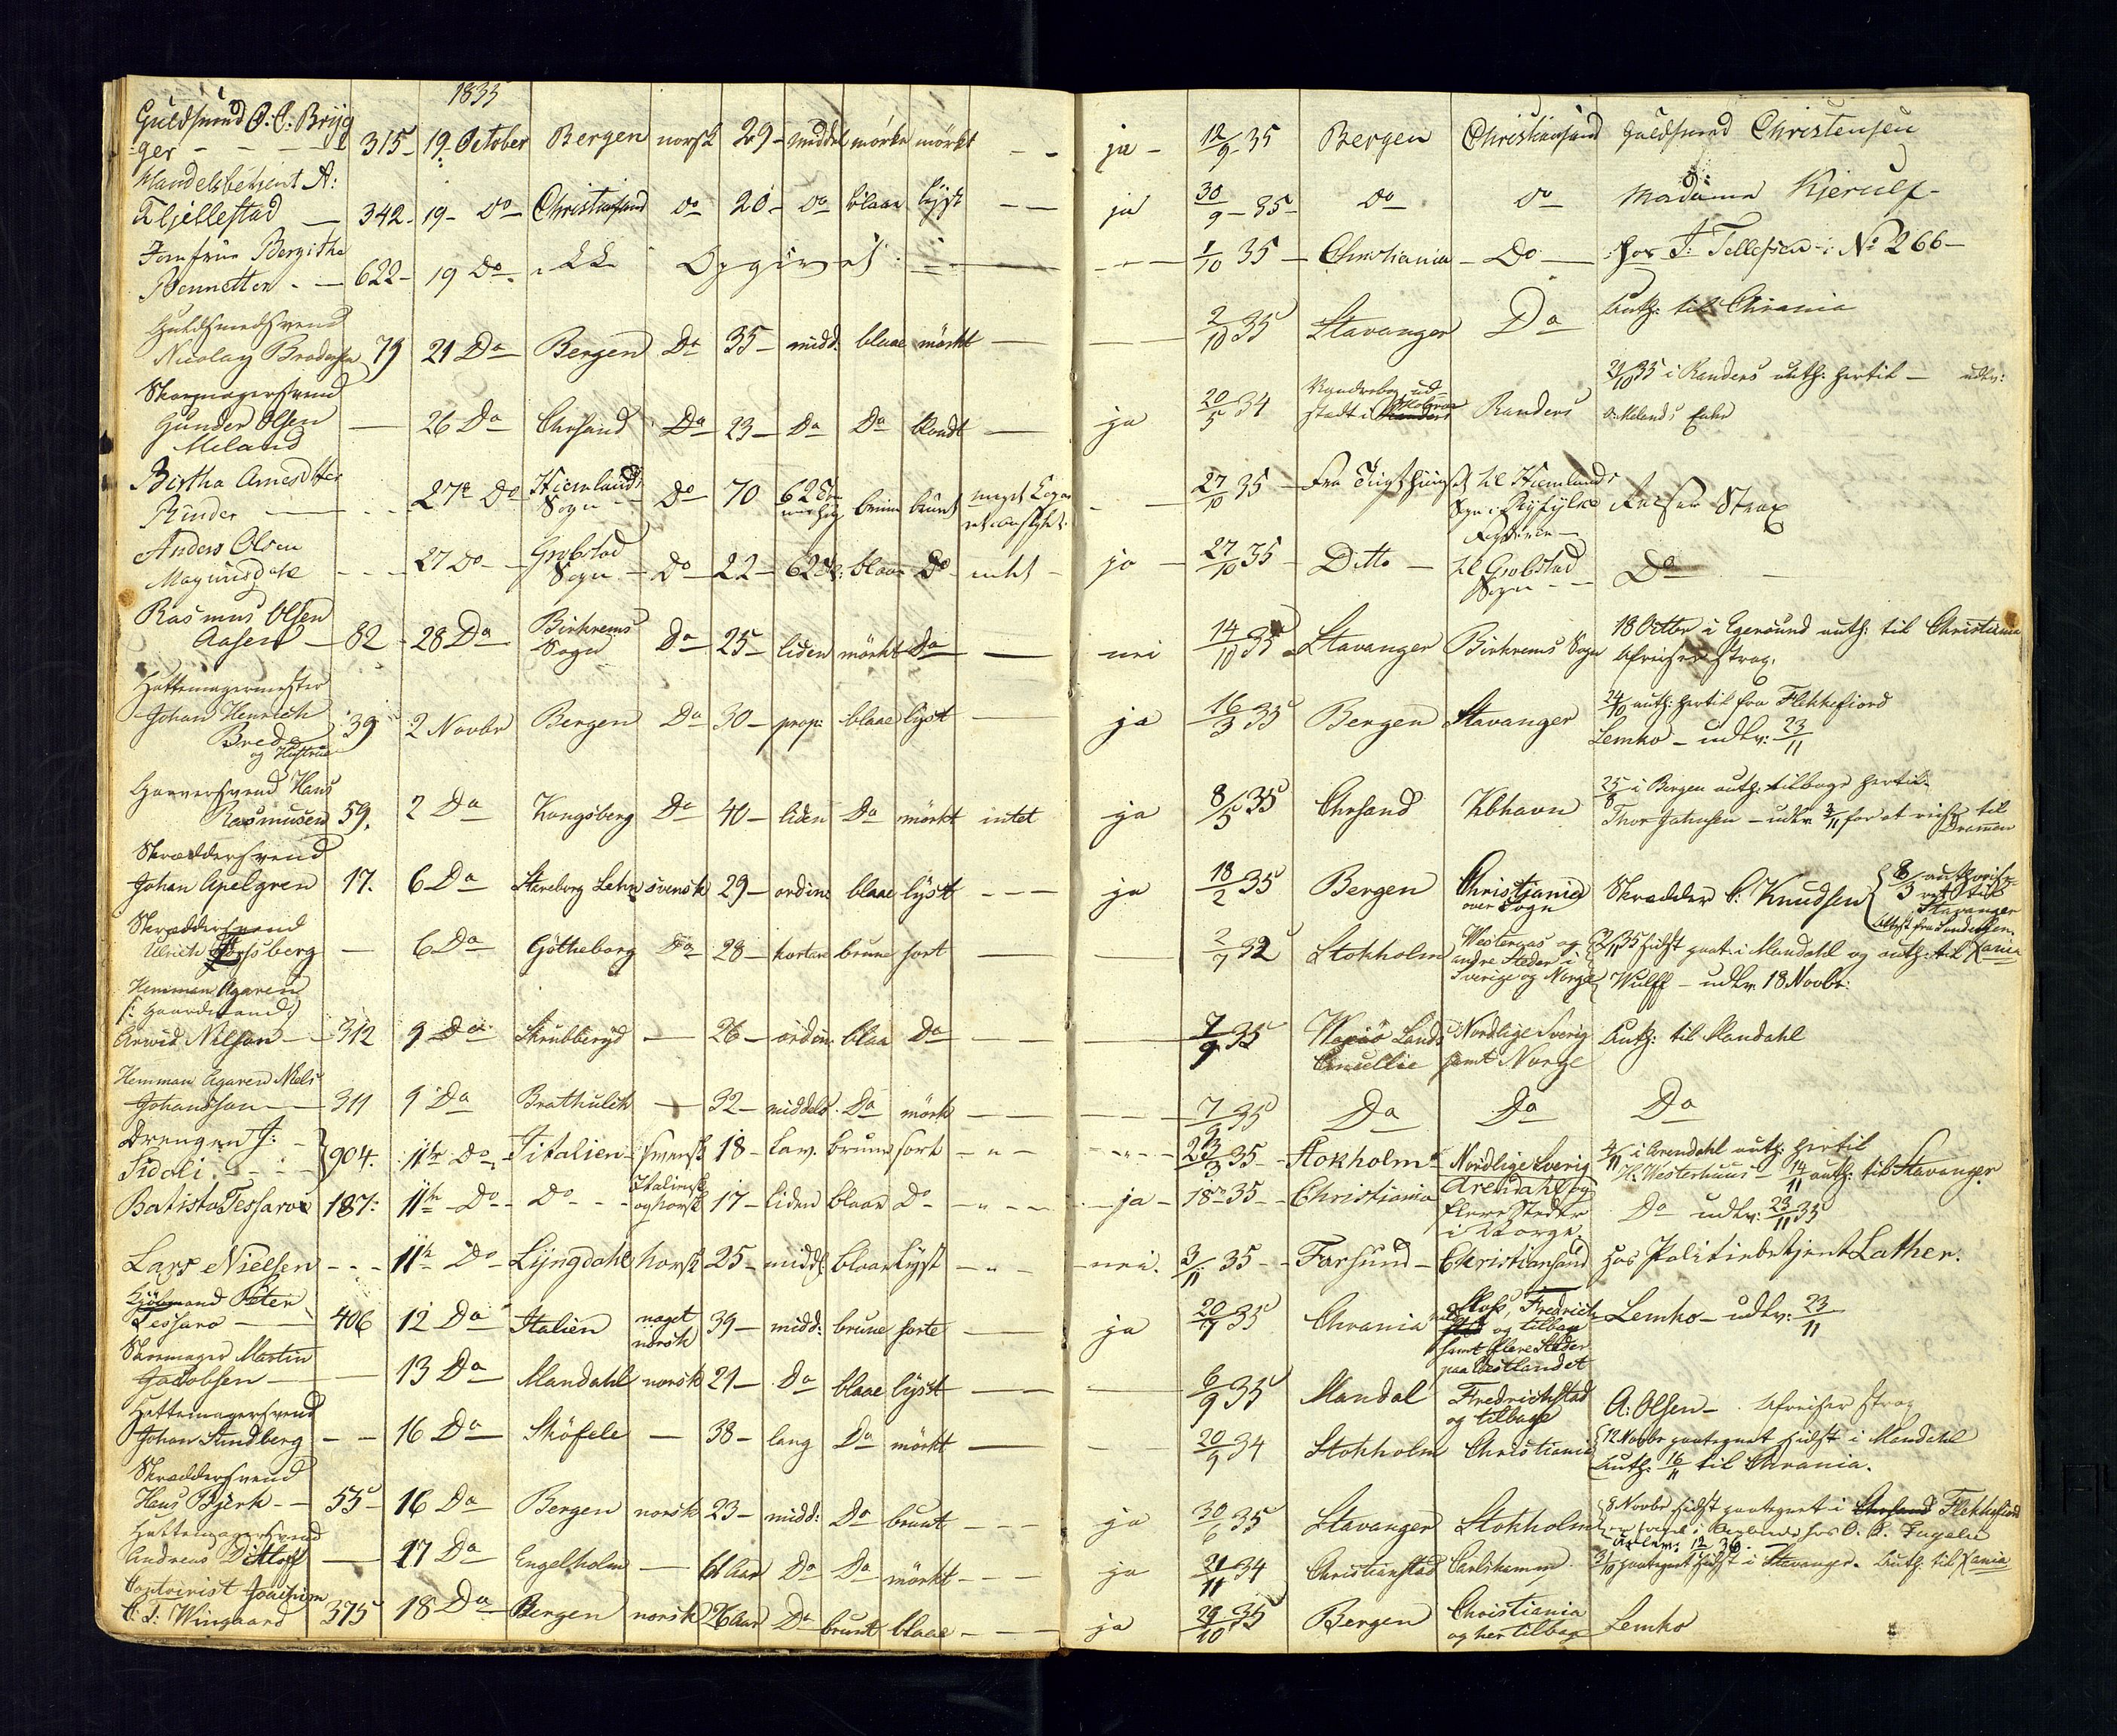 1835
Guldsmed O: C: Bryg
ger — 315 — 19 October Bergen norsk 29 — middel mörke mörkt — ja — 12/9 35 Bergen Christiansand Guldsmed Christensen
Handelsbetient A:
Fljellestad — 342 — 19 — do Christiansand do 20 — do blaae lyst — ja 30/9 — 35 — do do Madame Kjerulf —
Jomfrue Bergithe
Bennetter — 622 — 19 Do Opgivet — 1/10 35 — Christiania — Do — hos T. Tellefsen i No 266 —
Guldsmedsvend
Nicolay Brodersen 79 21 Da Bergen Da 35 — midd: blaae mörkt — 2/10 35 Stavanger Da Auth: til Chrania
Skoemagersvend
Gunder Olsen
Meland — 26 Da Chrsand Da 23 — Da Da blondt — ja 20/5 34 Vandrebog ud-
stædt i Randers 21/10 35 i Randers auth: hertil — udlv:
O: Melands Enke
Birtha Arnesdtter
Rinder — 27e Do Hiemlands
Sogn Do 70 brune brunt 27/10 35 — Fra Tugthuuset til Hiemlands
Sogn i Ryfylke Reiser Strax
Anders Olsen
Magnusdahl — 27 do — Sogn — Do — 22 — blaae Do intet — ja — 27/10 35 — Ditto — til
Sogn — Do —
Rasmus Olsen
Aasen — 82 — 28 Da Birkrems
Sogn Da 25 liden mörkt Da — nei 14/10 35 Stavanger Birkrems Sogn 18 Octbr i Egersund auth: til Christiania
Afreiser strax.
Hattemagermester
Johan Henrich
Brede
og Hustrue 39 2 Novbr Bergen Da 30 — prop: blaae lyst — ja 16/3 35 Bergen Stavanger 24/10 auth: hertil fra Flekkefiord
Lemko — udlv: 23/11
Garversvend Hans
Rasmusen 59. 2 Da Kongsberg Da 40 — liden Da mörkt intet ja 8/5 35 Chrsand Kbhavn 25/8 i Bergen auth: tilbage hertil
Thor Jahnsen — udlv 3/11 for at reise til
Drammen
Skræddersvend
Johan Apelgren 17. 6 Da Skareborg Lehn svensk 29 — ordine blaae lyst — ja 18/2 35 Bergen Christiania
over Sogn Skrædder C. Knudsen
Stavanger
Skræddersvend
Ulrich — 6 Da Götheborg Da 28 — kortere brune sort — 2/7 32 Stokholm Westeraas og
andre Steder i
Sverige og Norge 2/11 35 sidst paat: i Mandahl og auth: til Xania
Wulff — udlv 18 Novbr:
Hemman Agaren
(: Gaardmand)
Arwid Nilson — 312 9 Da Skrubberyd — 26 — ordin: blaa Da — 7/9 35 Wexiö Lands
Cancellie Nordlige Sverig
samt Norge Auth: til Mandahl
Hemman Agaren Niels
Johansson — 311 9 Da Brathulth — 32 — middels Da mörk — 7/9 35 Da Da Da
Drengen J: —
Sidoli — 904. 11te Do Italien — svensk 18 — Lav. brune sort — 23/3 35 — Stokholm — Nordlige Sverig 4/11 i Arendahl auth: hertil
H: Westerhuus — 14/11 auth: til Stavanger
Batista Tessaroe 187: 11te Do — Do — Italiensk
og norsk 17 — liden blaae Do — ja — 35 — Christiania Arendahl og
flere Steder
i Norge. Do udlv: 23/11 35
Lars Nielsen — 11te Do Lyngdahl norsk 25 — midds blaae Lyst — nei. 3/11 35 — Farsund — Christiansand hos Politiebetjent Lather.
Kjöbmand Peter
Tessaro — 406 12 Da Italien noget
norsk 39 — midd: brune sorte — ja 20/7 35 Chrania Moss, Fredrich-
stad og tilbage
samt flere Steder
paa Vestlandet Lemko — udlv: 23/11
Skoemager Martin
Jacobsen — 13 Da Mandahl norsk 21 — Da blaae lyst — 6/9 35 Mandal Fredrichstad
og tilbage A: Olsen — Afreiser strax
Hattemagersvend
Johan Sundberg — 16 Da Sköfele — 38 — lang Da mörkt — 20/9 34 Stokholm Christiania 12 Novbr paategnet sidst i Mandahl
Auth: 16/11 til Chrania.
Skræddersvend
Hans Bjerk — 55 16 Da Bergen norsk 23 — midd: Da brunt — ja 30/6 35 Stavanger Stokholm 8 Novbr sidst paategnet i Chrsand Flekkefiord
Hattemagersvend
Andreas Ditlof — 17 Da Engelholm — 61 Aar Da Da mörkt — ja 21/11 34 Christianstad Carlshamn 3/10 paategnet sidst i Stavanger. Auth: til Xania
Contoirist Joachim
C: T: Wingaard 375 18 Da Bergen norsk 26 Aar Da brunt blaae — ja 29/10 35 Bergen Christiania
og her tilbage Lemko